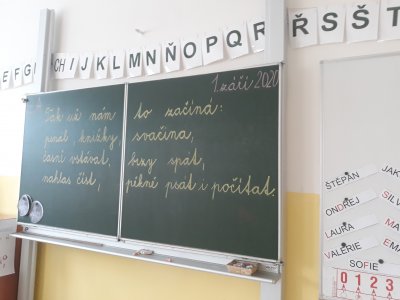 E F G CH I J K L M N Ň O P Q R Ř S Š T
1. září 2020
Tak už nám to začíná:
penál, knížky, svačina,
časně vstávat, brzy spát,
nahlas číst, pěkně psát i počítat.
ŠTĚPÁN JA
ONDŘEJ SIL
LAURA MA
VALÉRIE EM
SOFIE
0 1 2 3